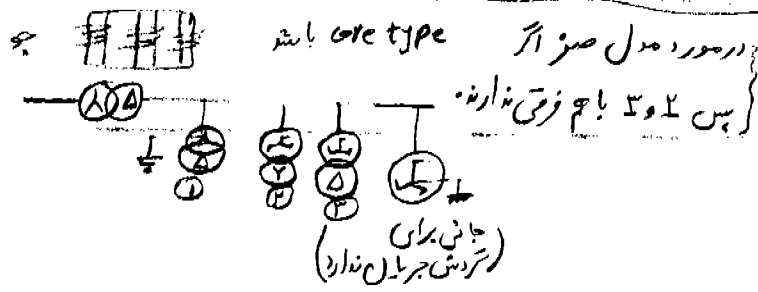 درمورد مدل صفر اگر core type باشد
پس ۲ و ۳ با هم فرقی ندارند.
۱ ۲ ۳
(جائی برای
گردش جریان ندارد)